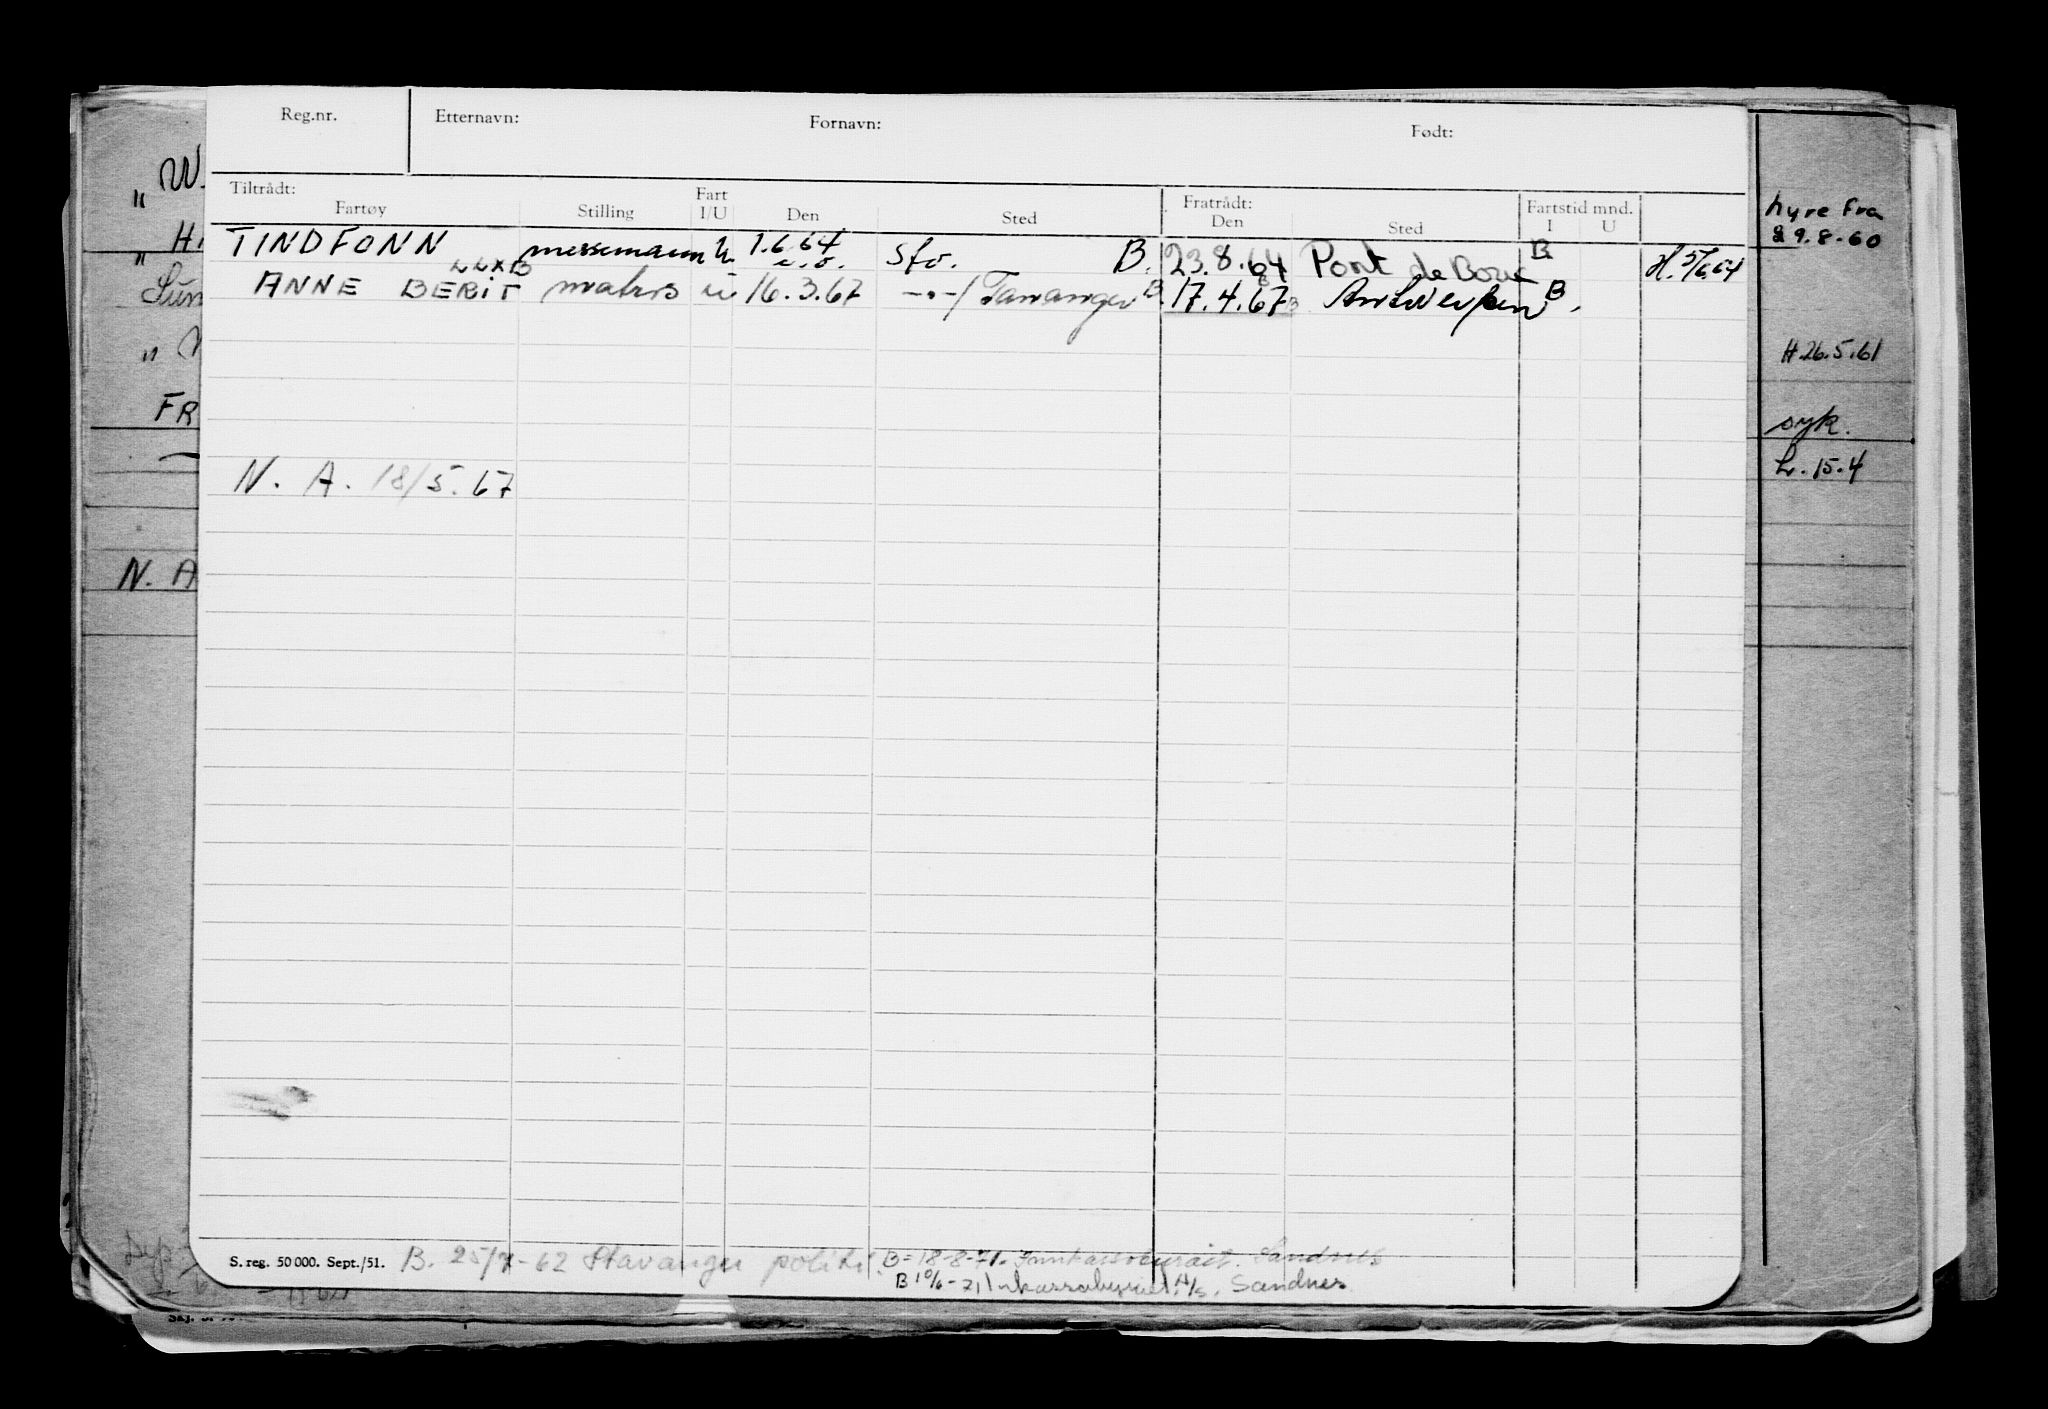 Reg.nr. Etternavn: Fornavn: Født:
Tiltrådt: Fartøy Stilling Fart I/U Den Sted Fratrådt: Den Sted Fartstid mnd. I U
TINDFONN messemann u 1.6.64 Stv. B. 23.8.64 Port de Bouc B H. 5/6.64
LLXB
ANNE BERIT matros u 16.3.67 -"-/Tananger B 17.4.67 Antwerpen B.
N. A. 18/5.67
S. reg. 50 000. Sept./51. B. 25/7-62 Stavanger politi. B= 18-8-71. Sandnes
B 10/6-71 Inkassobyriet A/S, Sandnes
"
"
" 
FR
N. A
hyre fra
29.8-60
H 26.5.61
syk.
L. 15.4